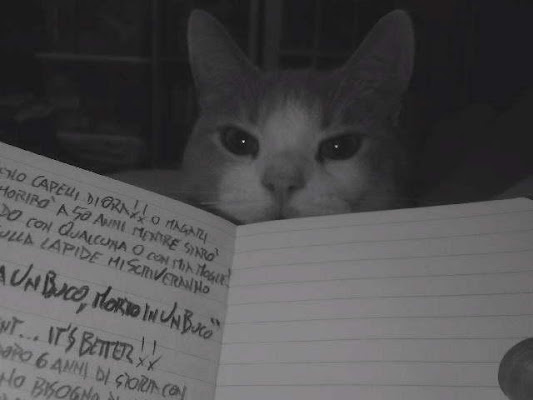 ENO CAPELLI DI ORA!! O MAGARI
MORIRO' A 50 ANNI MENTRE STARO'
DO CON QUALCUNA O CON MIA MOGLIE!
ULLA LAPIDE MI SCRIVERANNO
A UN BUCO, MORTO IN UN BUCO"
NT... IT'S BETTER!!
DOPO 6 ANNI DI STORIA CON
NO BISOGNO DI